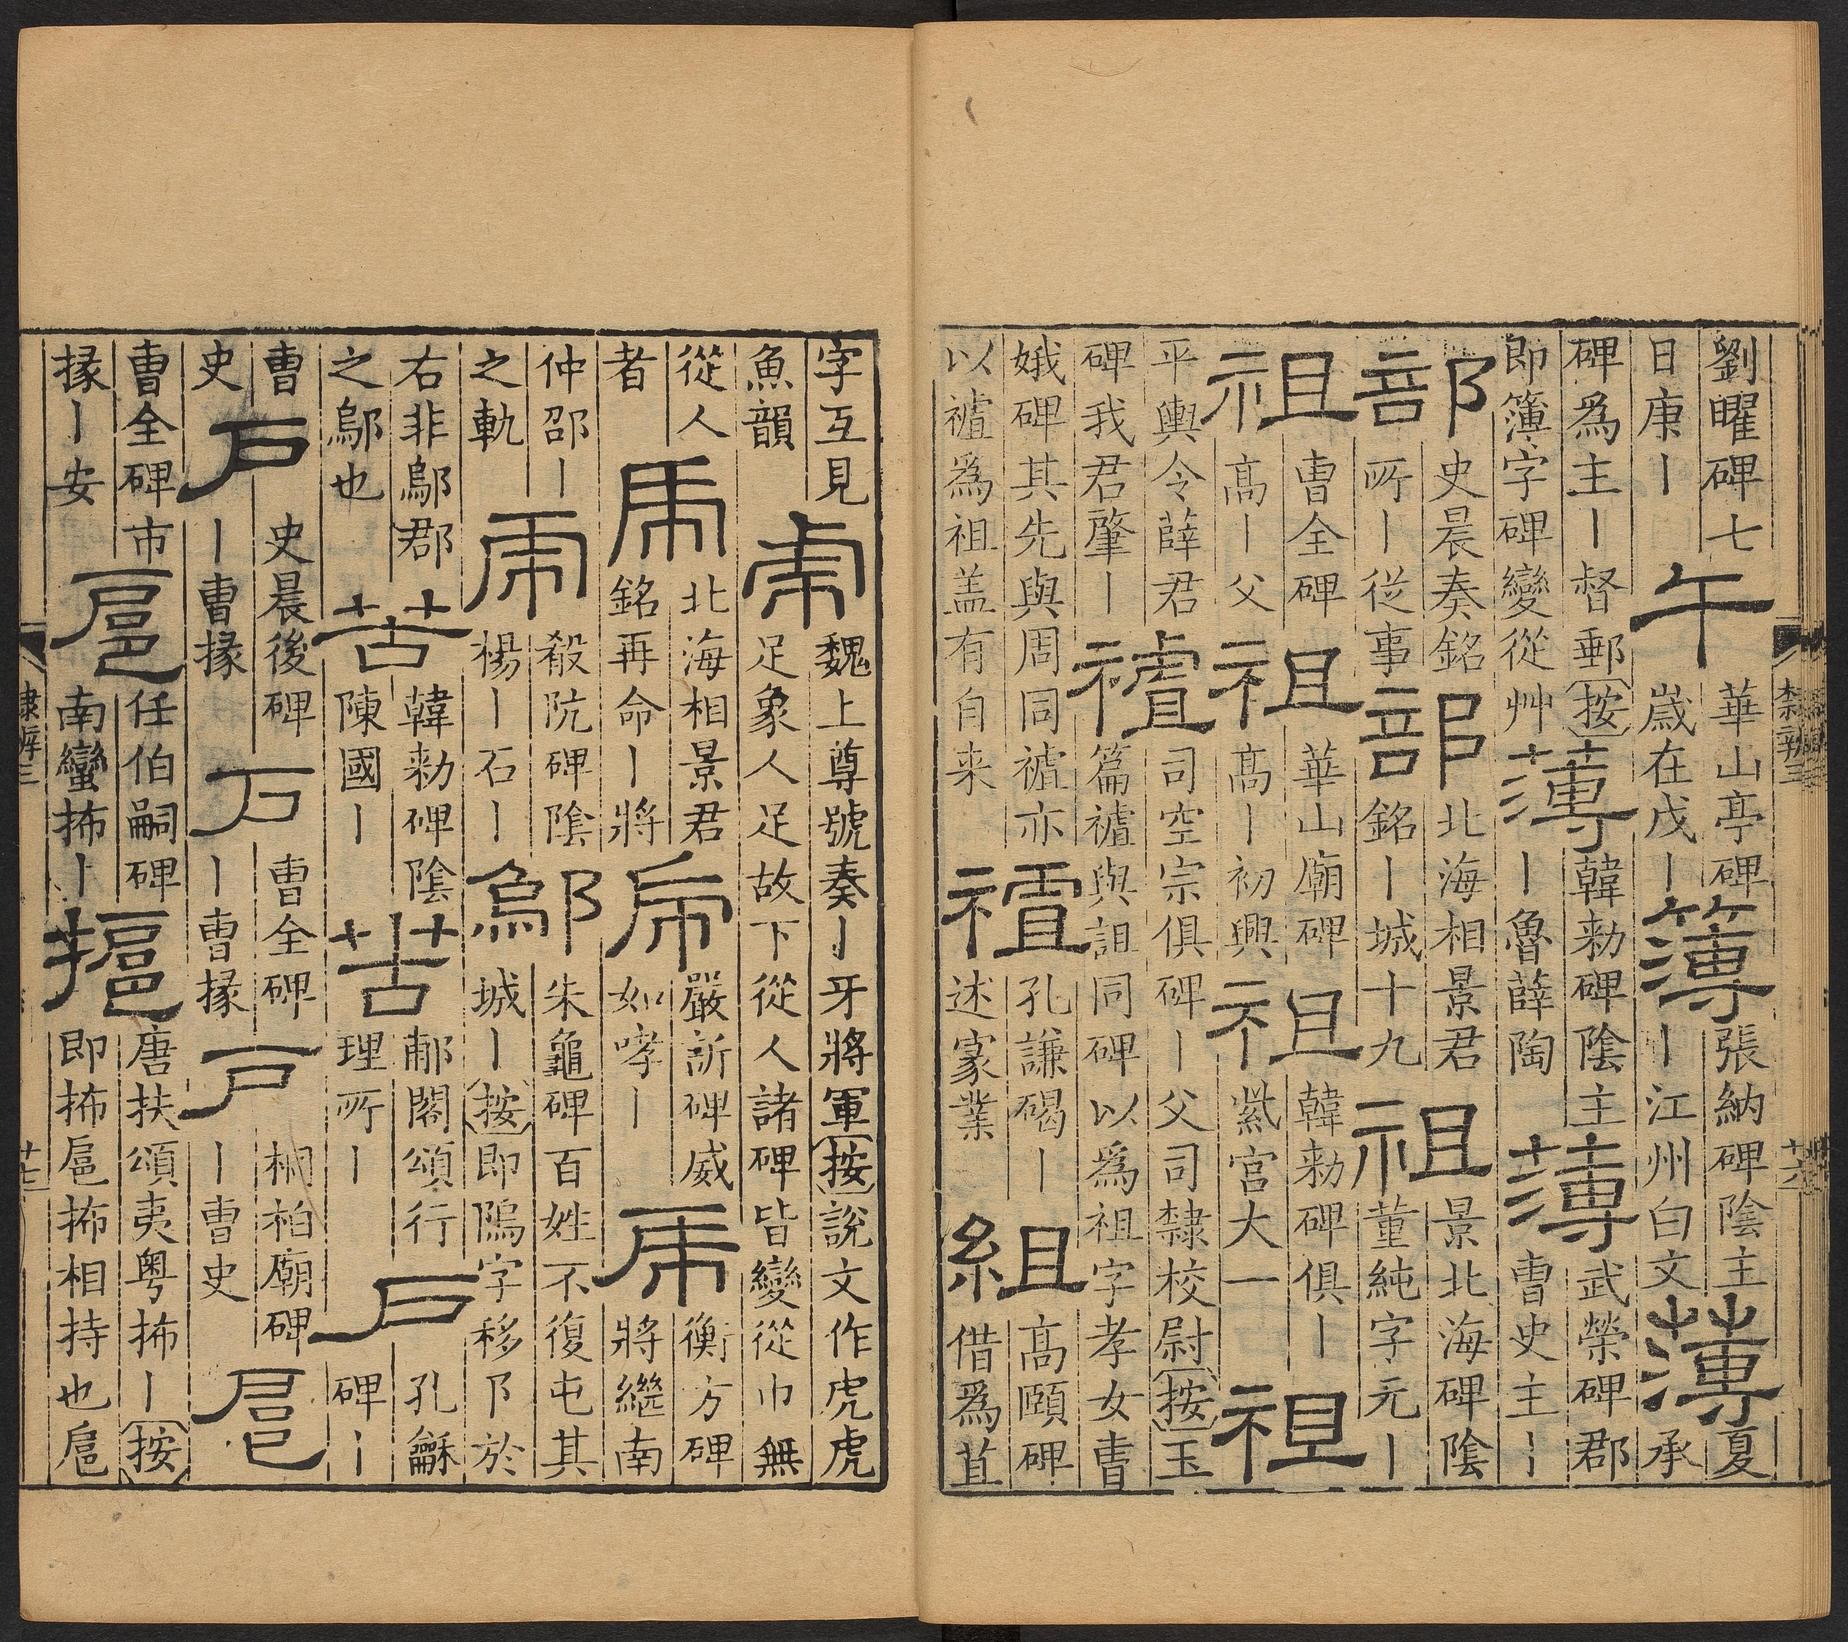 劉曜碑七
日庚丨
午
華山亭碑
歲在戊丨
簿
張納碑陰主
丨江州白文
薄
夏
承
碑爲主丨督郵按
即簿字碑變從艸
薄
韓勑碑陰主
丨魯薛陶
薄
武榮碑郡
曹史主丨
部
史晨奏銘
所丨從事
部
北海相景君
銘丨城十九
祖
景北海碑陰
董純字元丨
祖
曹全碑
高丨父
祖
華山廟碑
高丨初興
祖
韓勑碑俱丨
紫宮大一
祖
平輿令薛君
碑我君肇丨
䄙
司空宗俱碑丨父司隸校尉按玉
篇䄙與詛同碑以爲祖字孝女曹
娥碑其先與周同䄙亦
以䄙爲祖盖有自来
䄙
孔謙碣丨
述家業
組
高頤碑
借爲苴
字互見
魚韻
虎
魏上尊號奏丨牙將軍按說文作虎虎
足象人足故下從人諸碑皆變從巾無
從人
者
虎
北海相景君
銘再命丨將
虎
嚴訢碑威
如哮丨
虎
衡方碑
將繼南
仲邵丨
之軌
虎
殽阬碑陰
楊丨石丨
鄔
朱龜碑百姓不復屯其
城丨按即隖字移阝於
右非鄔郡
之鄔也
苦
韓勑碑陰
陳國丨
苦
郙閣頌行
理所丨
戶
孔龢
碑丨
曹
史
戶
史晨後碑
丨曹掾
戶
曹全碑
丨曹掾
戶
桐柏廟碑
丨曹史
扈
曹全碑市
掾丨安
扈
任伯嗣碑
南蠻抪丨
扈
唐扶頌夷粤抪丨按
即抪扈抪相持也扈